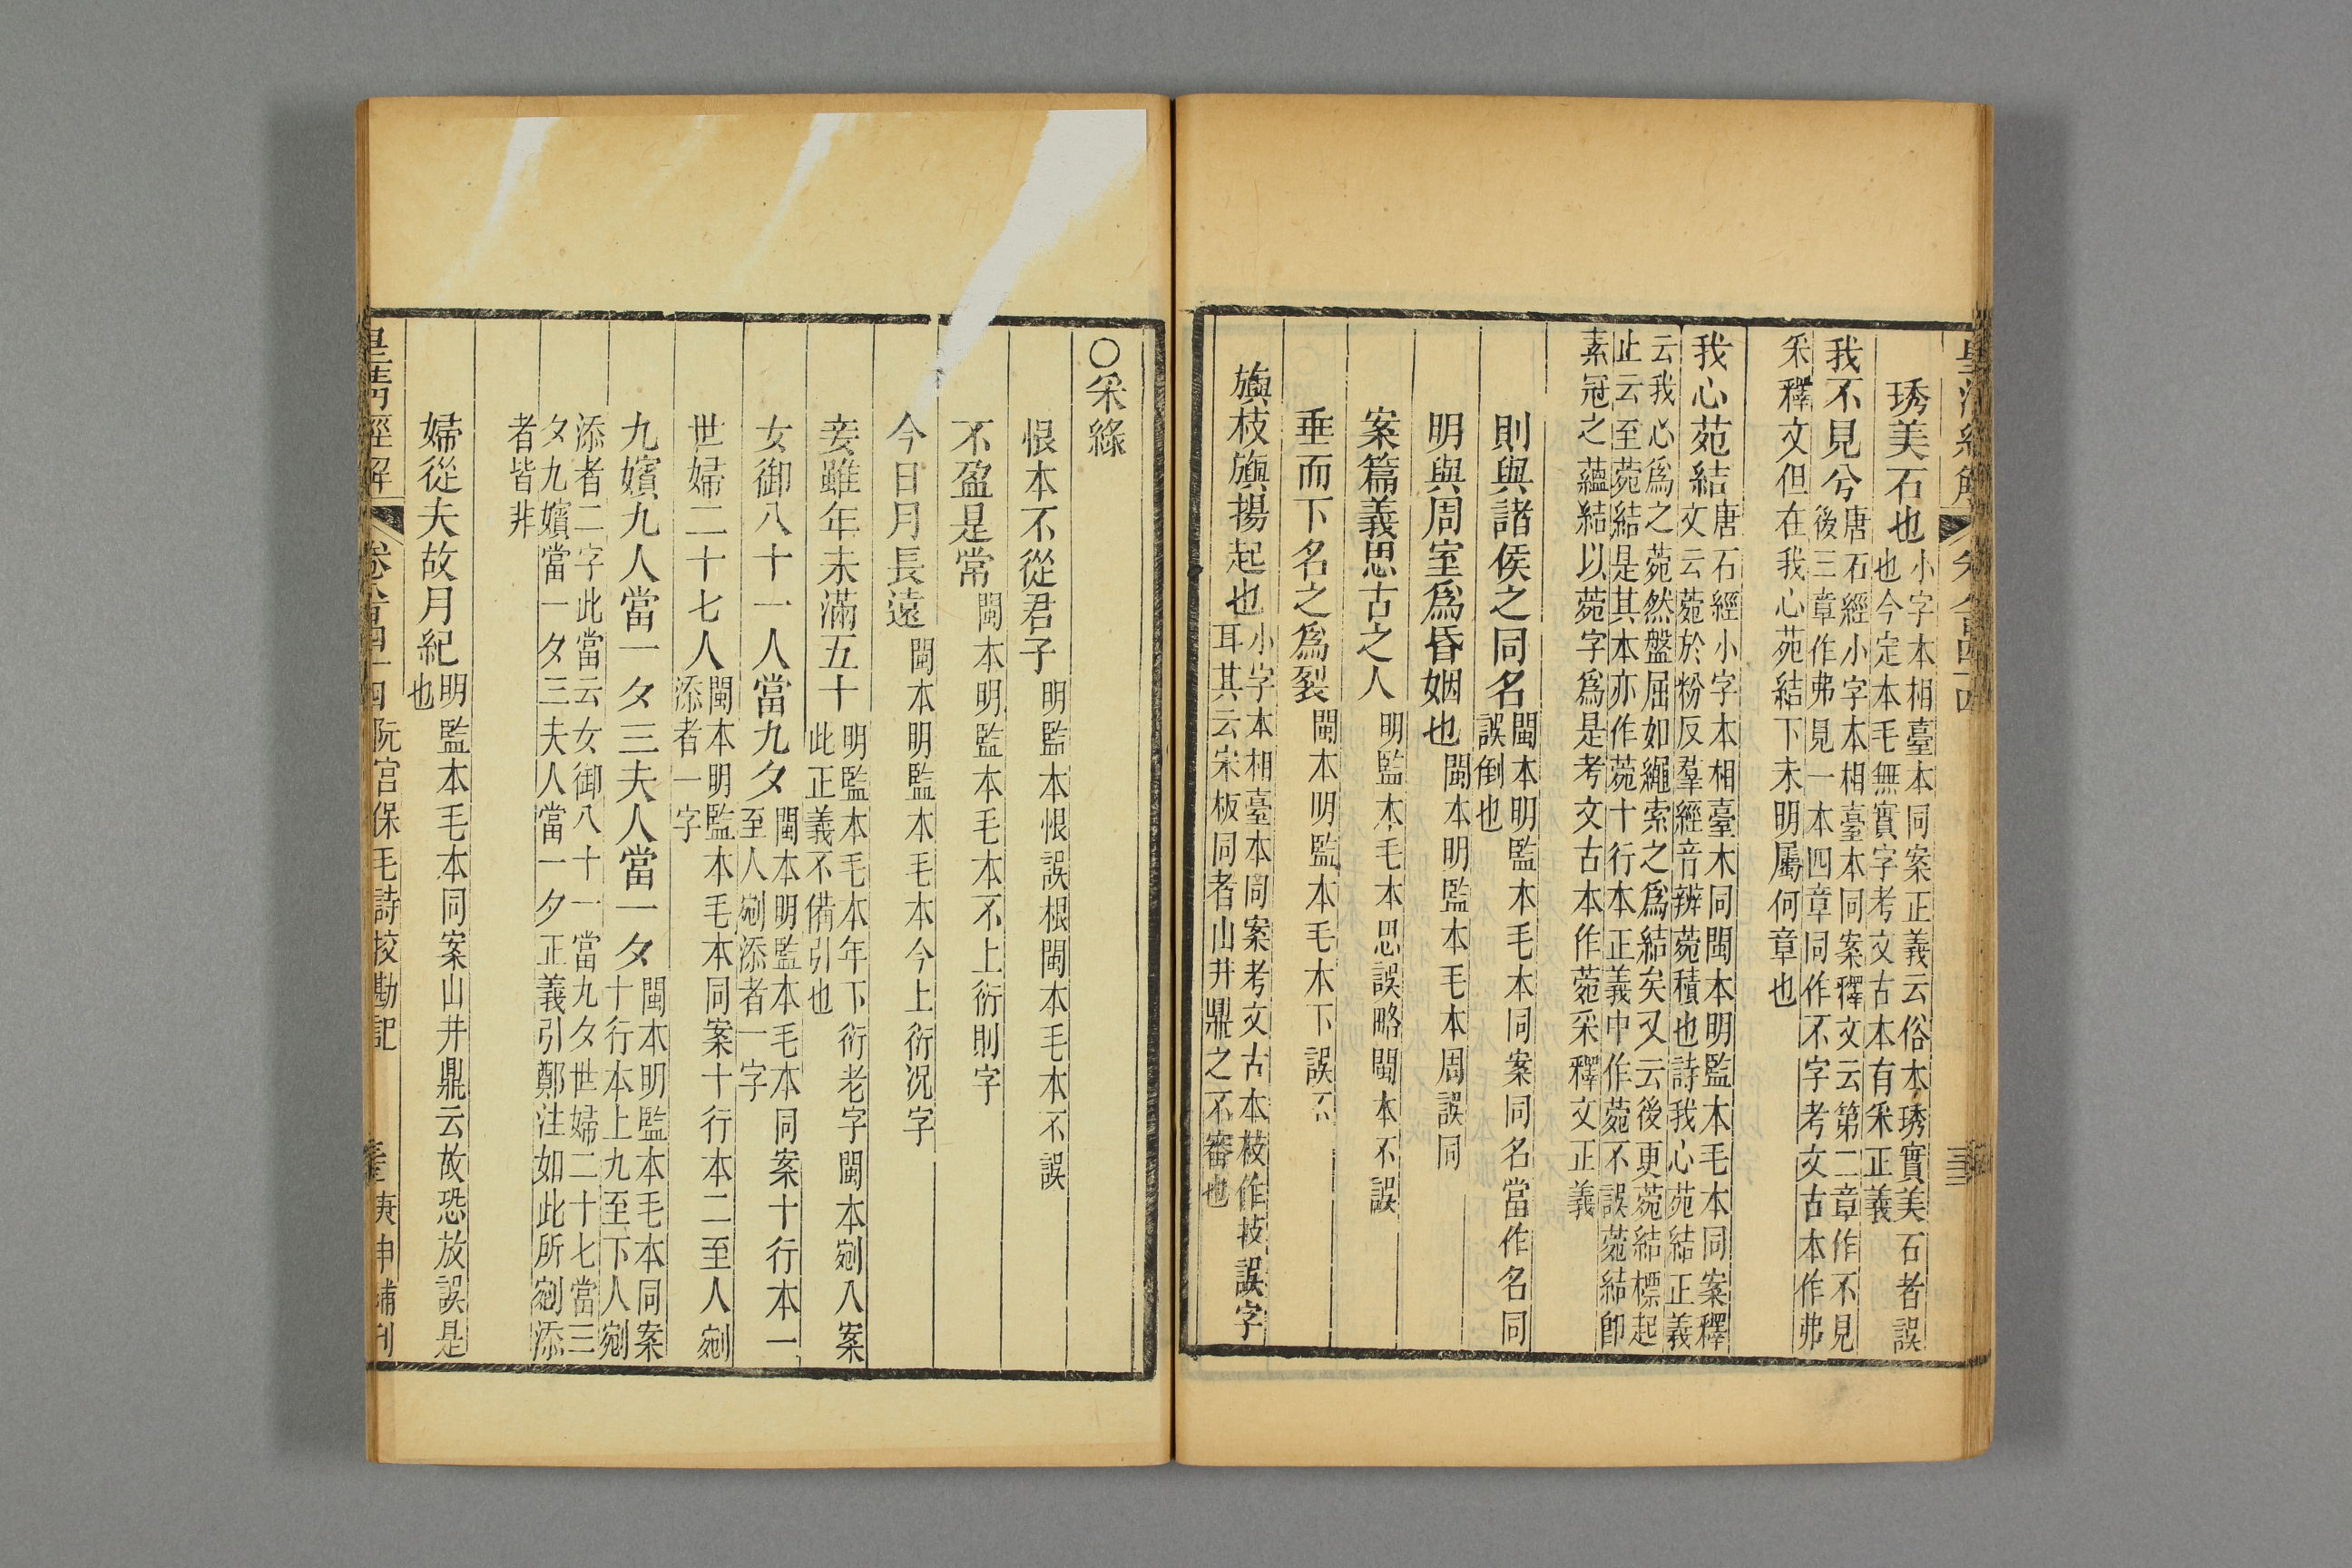 琇美石也小字本相臺本同案正義云俗本琇實美石者誤
也今定本毛無實字考文古本有采正義
我不見兮唐石經小字本相臺本同案釋文云第二章作不見
後三章作弗見一本四章同作不字考文古本作弗
采釋文但在我心苑結下未明屬何章也
我心苑結唐石經小字本相臺本同閩本明監本毛本同案釋
文云菀於粉反羣經音辨菀積也詩我心苑結正義
云我心爲之菀然盤屈如繩索之爲結矣又云後更菀結標起
止云至菀結是其本亦作菀十行本正義中作菀不誤菀結卽
素冠之蘊結以菀字爲是考文古本作菀采釋文正義
則與諸侯之同名閩本明監本毛本同案同名當作名同
誤倒也
明與周室爲昏姻也閩本明監本毛本周誤同
案篇義思古之人明監本毛本思誤略閩本不誤
垂而下名之爲裂閩本明監本毛本下誤不
旟枝旟揚起也小字本相臺本同案考文古本枝作技誤字
耳其云宋板同者山井鼎之不審也
○采綠
恨本不從君子明監本恨誤根閩本毛本不誤
不盈是常閩本明監本毛本不上衍則字
今日月長遠閩本明監本毛本今上衍况字
妾雖年未滿五十明監本毛本年下衍老字閩本剜入案
此正義不備引也
女御八十一人當九夕閩本明監本毛本同案十行本一
至人剜添者一字
世婦二十七人閩本明監本毛本同案十行本二至人剜
添者一字
九嬪九人當一夕三夫人當一夕閩本明監本毛本同案
十行本上九至下人剜
添者二字此當云女御八十一當九夕世婦二十七當三
夕九嬪當一夕三夫人當一夕正義引鄭注如此所剜添
者皆非
婦從夫故月紀明監本毛本同案山井鼎云故恐放誤是
也
皇清經解 卷八百四十四 阮宮保毛詩挍勘記 庚申補刊